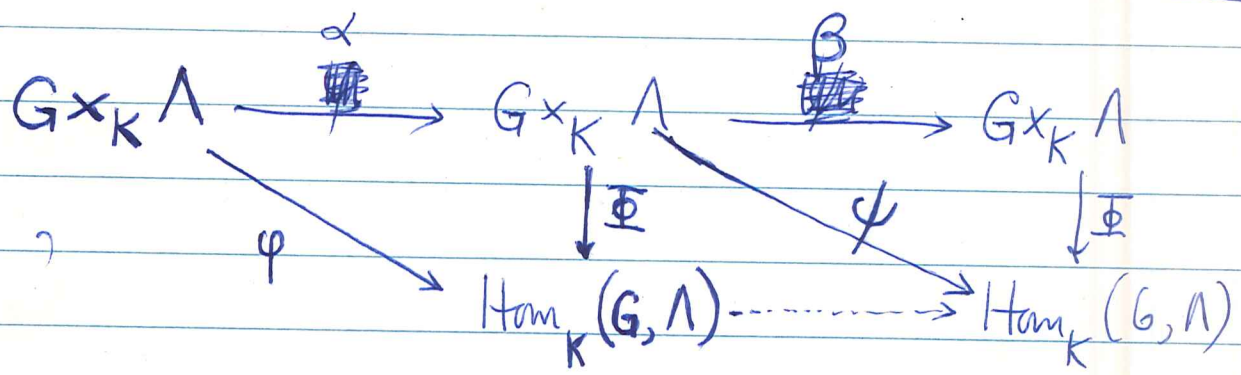 α β
G×_K Λ G×_K Λ G×_K Λ
φ Φ ψ Φ
Hom_K(G,Λ) Hom_K(G,Λ)